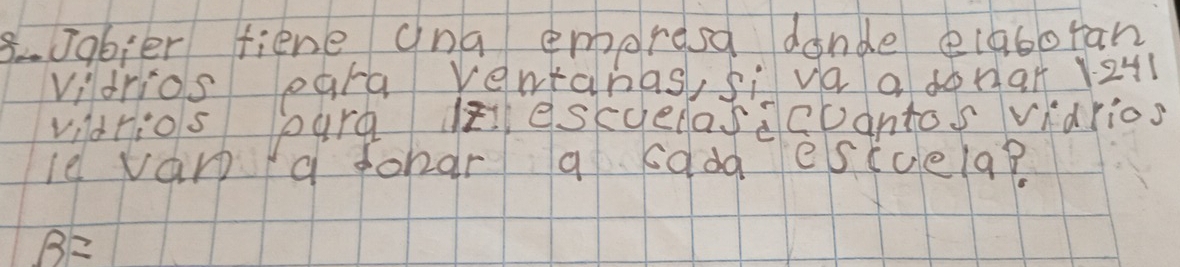 8- Jabier tiene una empresa donde elaboran
vidrios para ventanas, si va a donar 1.241
vidrios para escuelas ¿cuantos vidrios
le van a donar a cada escuela?
R=